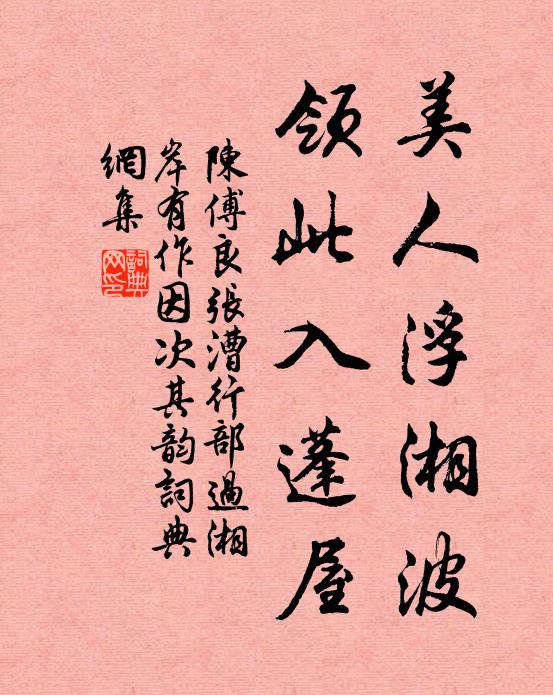 美人浮湘波
領此入蓬屋
陳傅良張漕行部過湘
岸有作因次其韵詞典
網集
詞典
网印